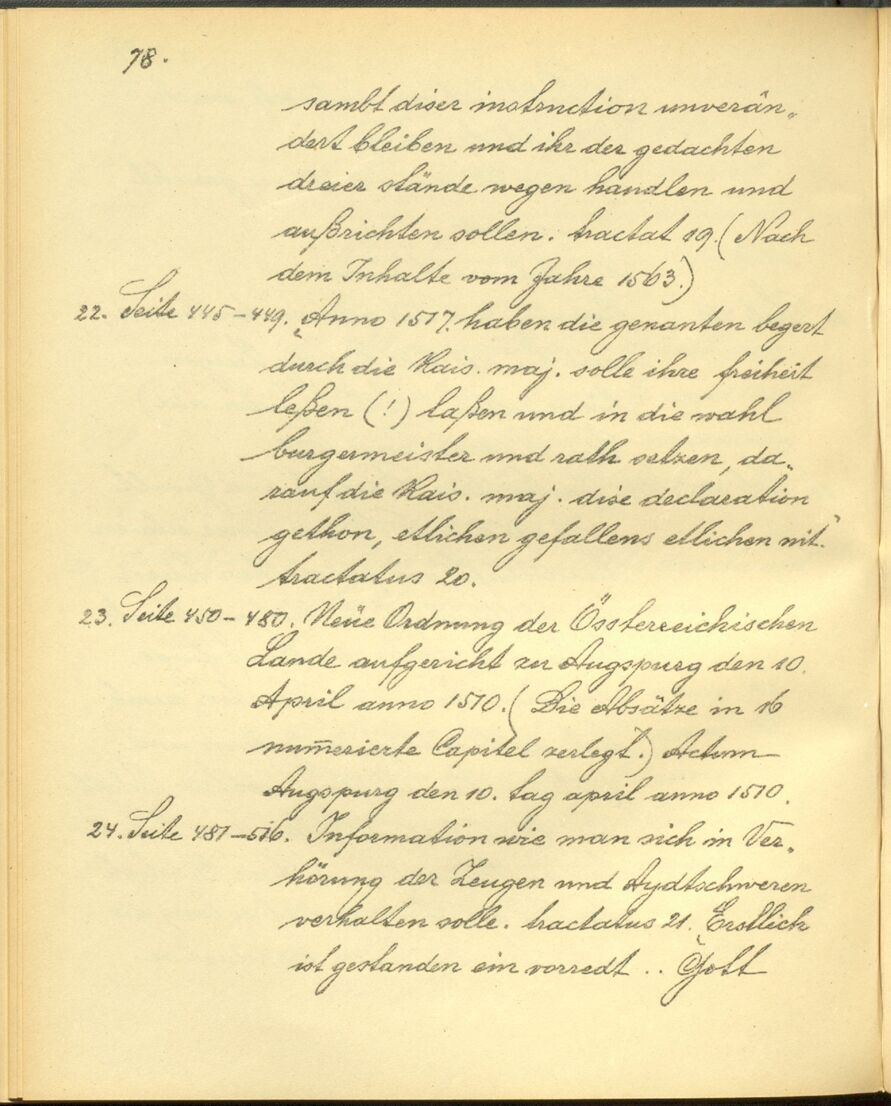 78.
sambt diser instruction unverän„
dert bleiben und ihr der gedachten
dreier stände wegen handlen und
außrichten sollen. tractat 19. (Nach
dem Inhalte vom Jahre 1563.)
22. Seite 445-449. „Anno 1517. haben die genanten begert
durch die Kais. maj. solle ihre freiheit
leßen (!) laßen und in die wahl
burgermeister und rath setzen, da„
rauf die Kais. maj. dise declaration
gethon, etlichen gefallens etlichen nit."
tractatus 20.
23. Seite 450-480. Neüe Ordnung der Össterreichischen
Lande aufgericht zu Augspurg den 10.
April anno 1510. (Die Absätze in 16
num̄erierte Capitel zerlegt.) Actum
Augspurg den 10. tag april anno 1510.
24. Seite 481-516. Information wie man sich in Ver„
hörung der Zeugen und Aydtschweren
verhalten solle. tractatus 21. „Erstlich
ist gestanden ein vorredt .. Gott